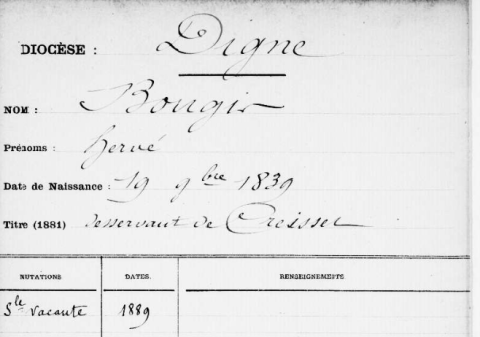 DIOCÈSE : Digne
NOM : Bougir
Prénoms : hervé
Date de Naissance : 19 9bre 1839
Titre (1881) desservant de Creisset
MUTATIONS. DATES. RENSEIGNEMENTS
Sle vacante 1889